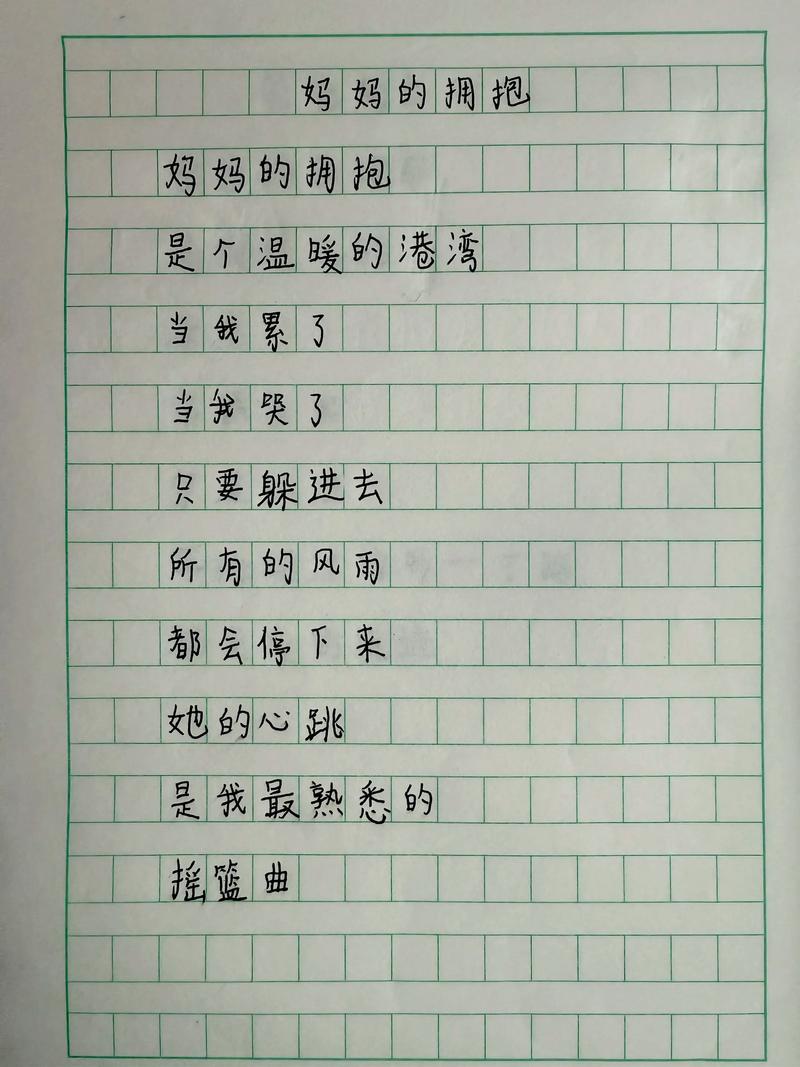 妈妈的拥抱
妈妈的拥抱
是个温暖的港湾
当我累了
当我哭了
只要躲进去
所有的风雨
都会停下来
她的心跳
是我最熟悉的
摇篮曲